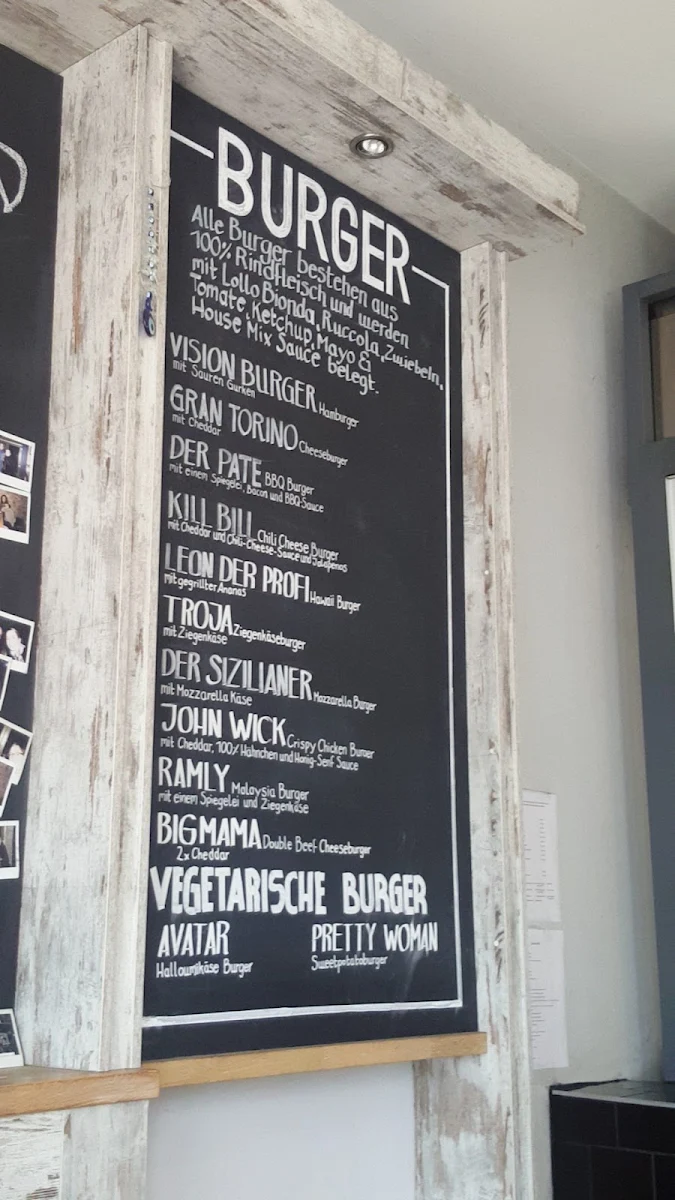 BURGER
Alle Burger bestehen aus
100% Rindfleisch und werden
mit Lollo Bionda, Ruccola, Zwiebeln,
Tomate, Ketchup, Mayo &
House Mix Sauce belegt.
VISION BURGER Hamburger
mit Sauren Gurken
GRAN TORINO Cheeseburger
mit Cheddar
DER PATE BBQ Burger
mit einem Spiegelei, Bacon und BBQ-Sauce
KILL BILL Chili Cheese Burger
mit Cheddar und Chili-Cheese-Sauce und Jalapenos
LEON DER PROFI Hawaii Burger
mit gegrillter Ananas
TROJA Ziegenkäseburger
mit Ziegenkäse
DER SIZILIANER Mozzarella Burger
mit Mozzarella Käse
JOHN WICK Crispy Chicken Burger
mit Cheddar, 100% Hähnchen und Honig-Senf Sauce
RAMLY Malaysia Burger
mit einem Spiegelei und Ziegenkäse
BIGMAMA Double Beef-Cheeseburger
2x Cheddar
VEGETARISCHE BURGER
AVATAR PRETTY WOMAN
Halloumikäse Burger Sweetpotatoburger